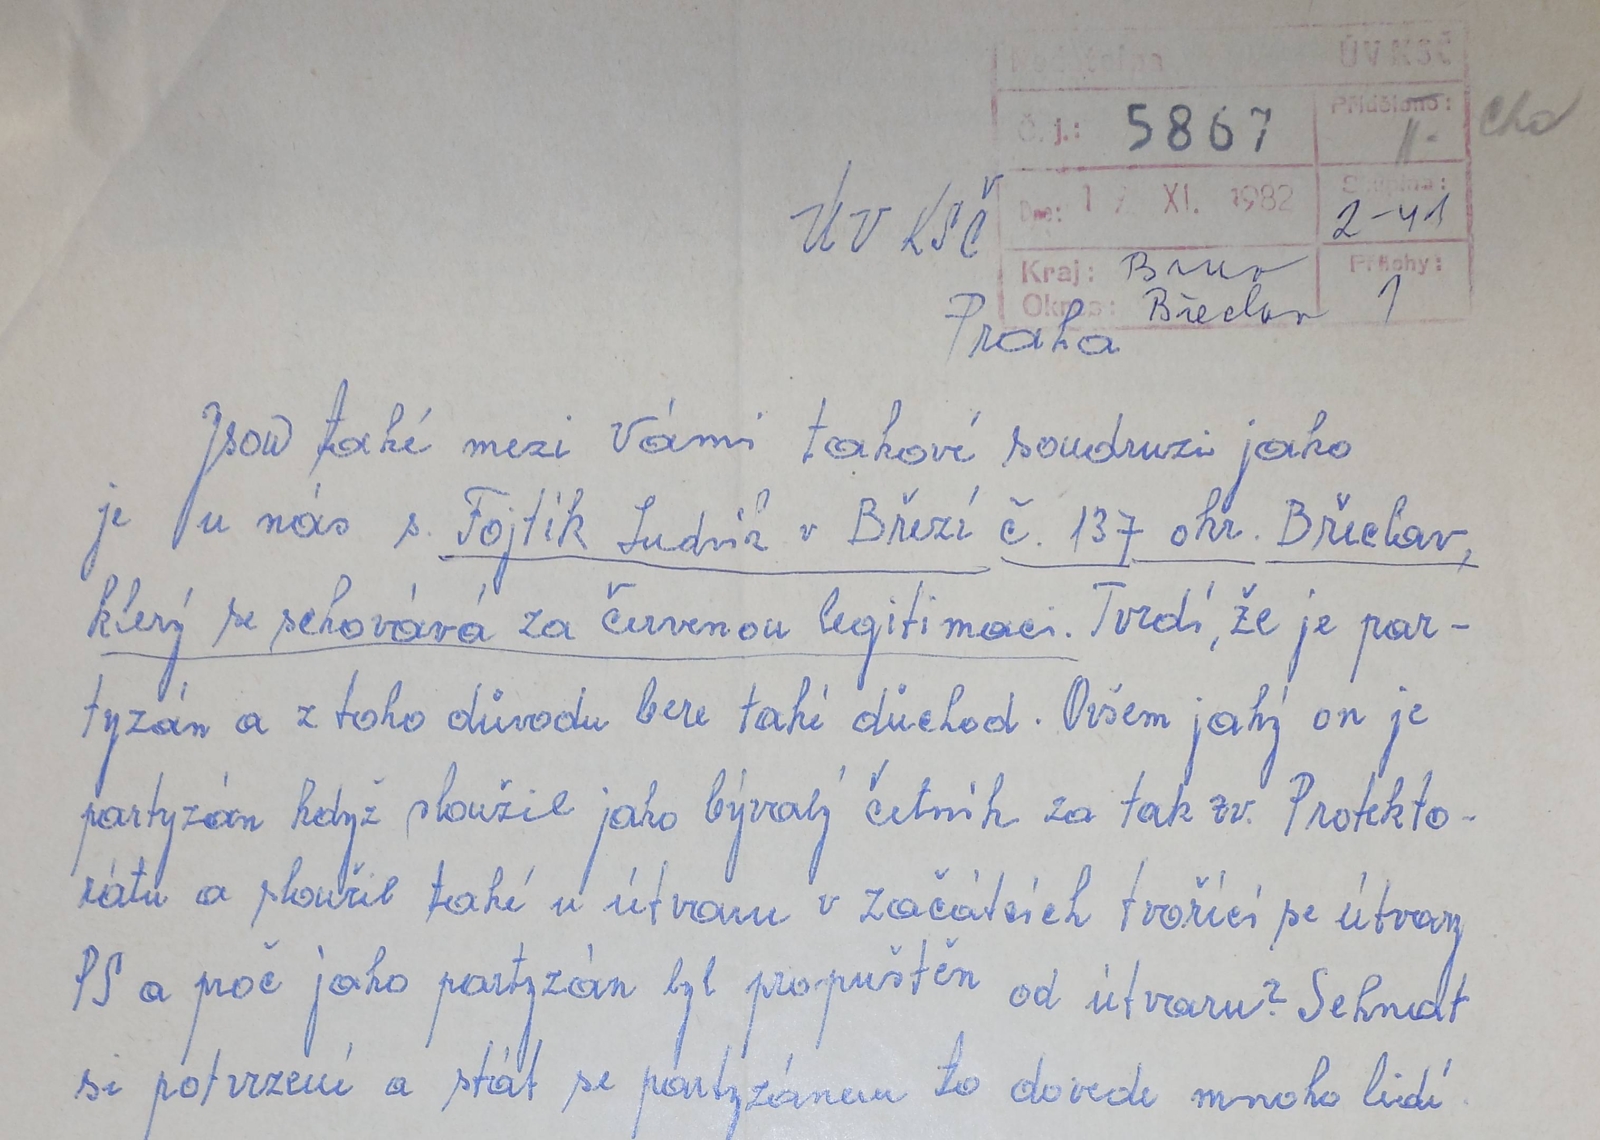 ÚV KSČ
Č. j.: 5867 Přiděleno: II.
Dne: 1 XI. 1982 Skupina: 2-41
Kraj: Brno Přílohy: 1
Okres: Břeclav
ÚV KSČ
Praha
Jsou také mezi Vámi takové soudruzi jako
je u nás s. Fojtík Ludvík v Březí č. 137 okr. Břeclav,
který se schovává za červenou legitimaci. Tvrdí, že je par-
tyzán a z toho důvodu bere také důchod. Ovšem jaký on je
partyzán když sloužil jako bývalý četník za tak zv. Protekto-
rátu a sloužil také u útvaru v začátcích tvořící se útvary
PS a proč jako partyzán byl propuštěn od útvaru? Sehnat
si potvrzení a stát se partyzánem to dovede mnoho lidí.